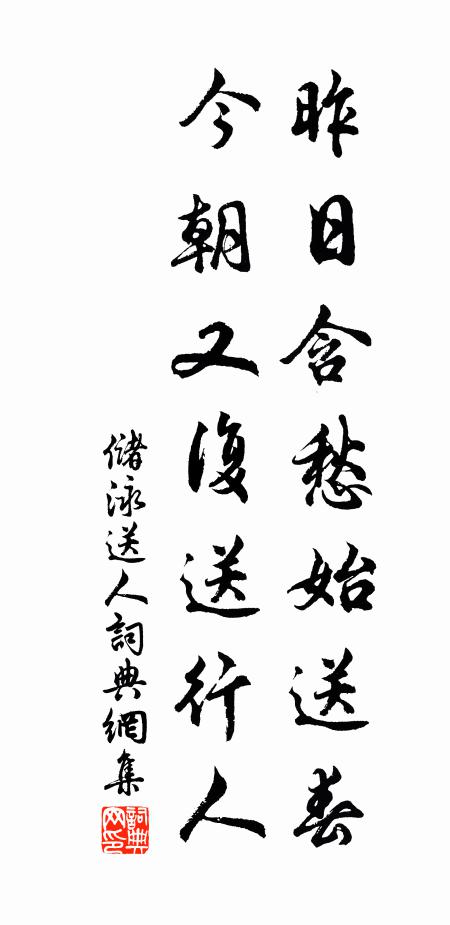 昨日含愁始送春
今朝又復送行人
儲泳送人詞典網集
詞典網印